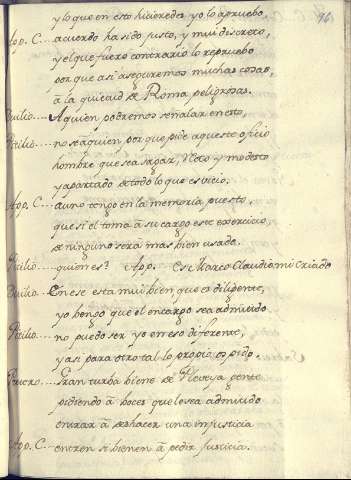 96
y lo que en esto hicieredes yo lo apruebo,
App. C... acuerdo ha sido justo, y mui discreto,
y el que fuere contrario lo repruebo
por que asi aseguremos muchas cosas,
â la quietud de Roma peligrosas.
Duilio.... A quien podremos señalar en esto,
Petilio.... no se a quien, por que pide aqueste oficio
hombre que sea sagaz, recto y modesto
y apartado de todo lo que es vicio.
App. C... a uno tengo en la memoria puesto,
que si el toma â su cargo este exercicio,
de ninguno será mas bien usado.
Petilio.... quien es? App. Es Marco Claudio mi criado
Duilio.... En ese esta mui bien que es diligente,
yo bengo que el encargo sea admitido
Petilio.... no puedo ser yo en eso diferente,
y asi para otro tal lo propio os pido.
Gran turba biene de Pleveya gente
pidiendo â boces que le sea admitido
entrar â deshacer una injusticia
App. C... entren si bienen â pedir justicia.